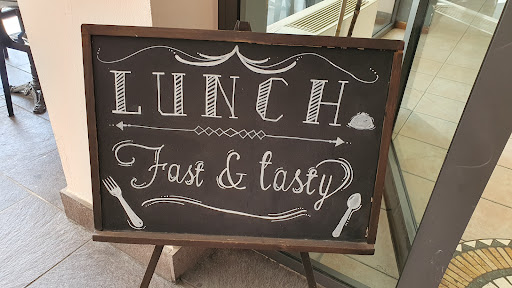 LUNCH
Fast & tasty